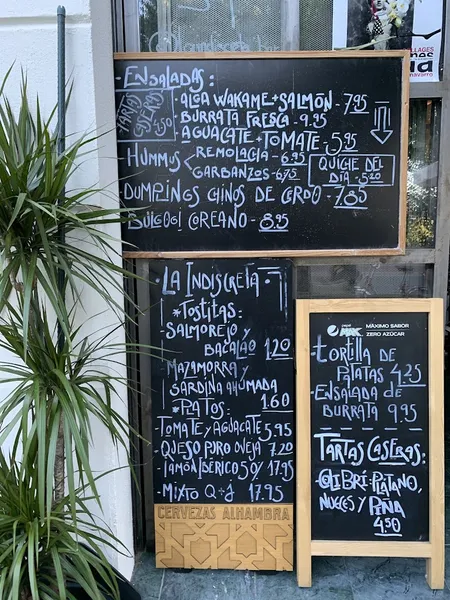 ENSALADAS:
TARTAS
CASERAS
4.50
ALGA WAKAME + SALMÓN - 7.95
BURRATA FRESCA - 9.95
AGUACATE + TOMATE - 5.95
- HUMMUS < REMOLACHA - 6.95
GARBANZOS - 6.75
QUICHE DEL
DÍA - 5.20
- DUMPINGS CHINOS DE CERDO - 7.85
- BULGOGI COREANO - 8.95
LA INDISCRETA
* TOSTITAS:
- SALMOREJO y
BACALAO 1.20
MAZAMORRA y
SARDINA AHUMADA
1.60
* PLATOS:
TOMATE y AGUACATE 5.95
- QUESO PURO OVEJA 7.20
- JAMÓN IBÉRICO 50/ 17.95
- MIXTO Q+J 17.95
CERVEZAS ALHAMBRA
MAX
MÁXIMO SABOR
ZERO AZÚCAR
TORTILLA DE
PATATAS 4.25
- ENSALADA DE
BURRATA 9.95
TARTAS CASERAS:
- COLIBRÍ: PLÁTANO,
NUECES Y PIÑA
4.50